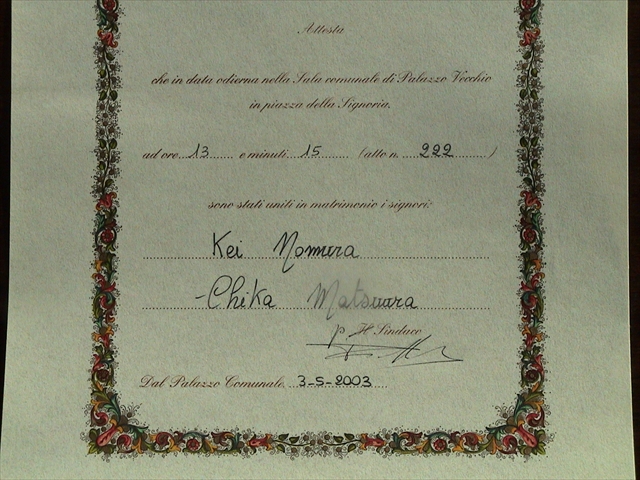 Attesta
che in data odierna nella Sala comunale di Palazzo Vecchio
in piazza della Signoria,
ad ore 13 e minuti 15 (atto n. 222)
sono stati uniti in matrimonio i signori:
Kei Nomura
Chika Matsuura
p. Il Sindaco
Dal Palazzo Comunale, 3-5-2003